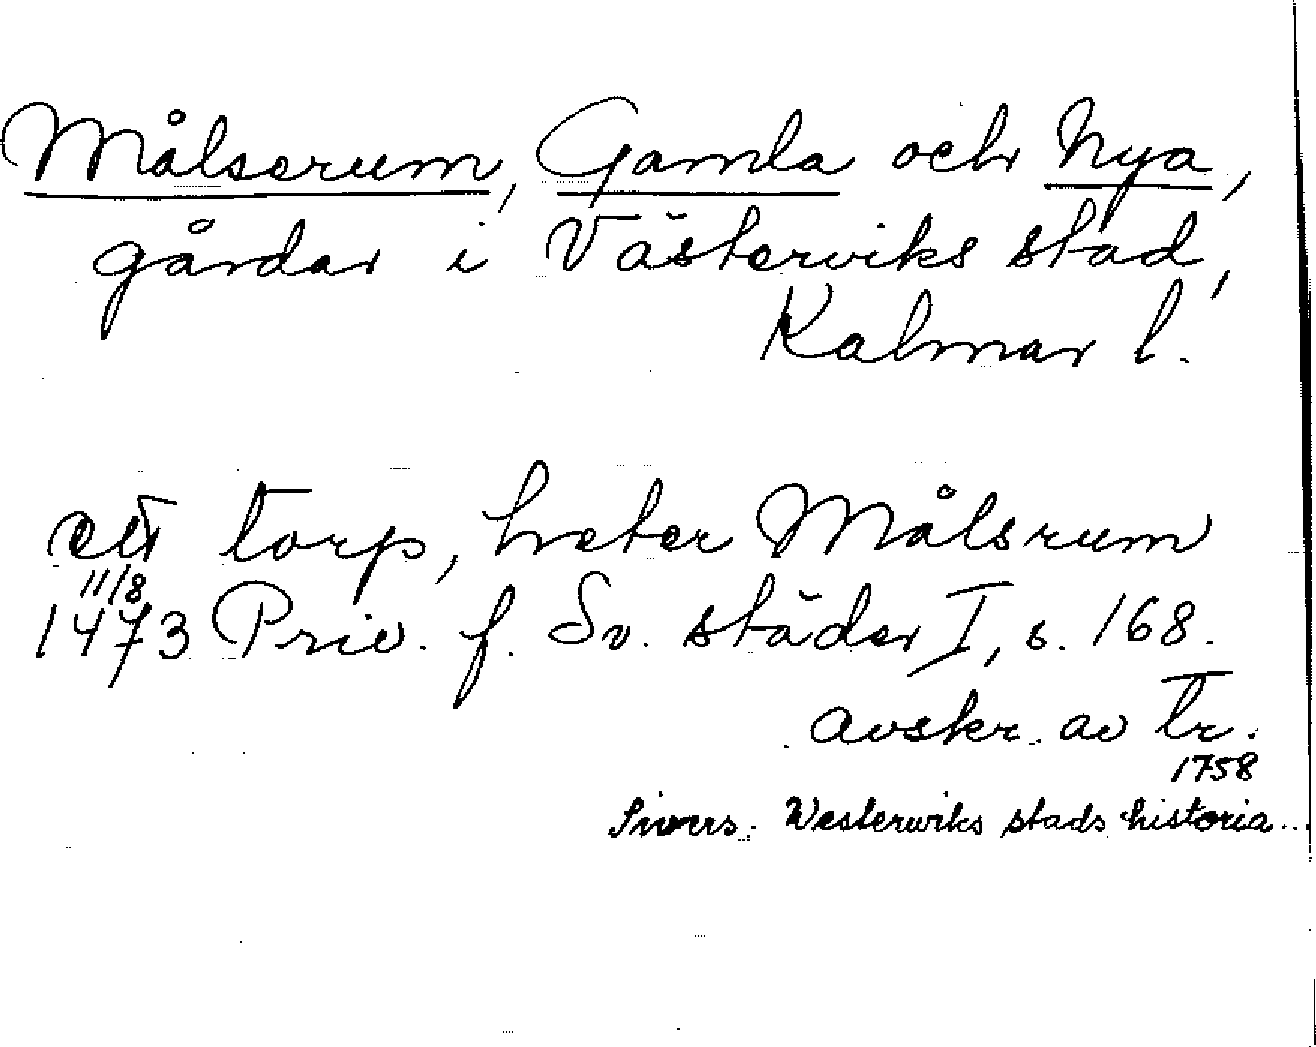 Målserum, Gamla och Nya,
gårdar i Västerviks stad,
Kalmar l.
ett torp, heter Målsrum
11/8
1473 Priv. f. Sv. städer I, s. 168.
avskr. av tr.
1758
Sivers. Westerwiks stads historia...